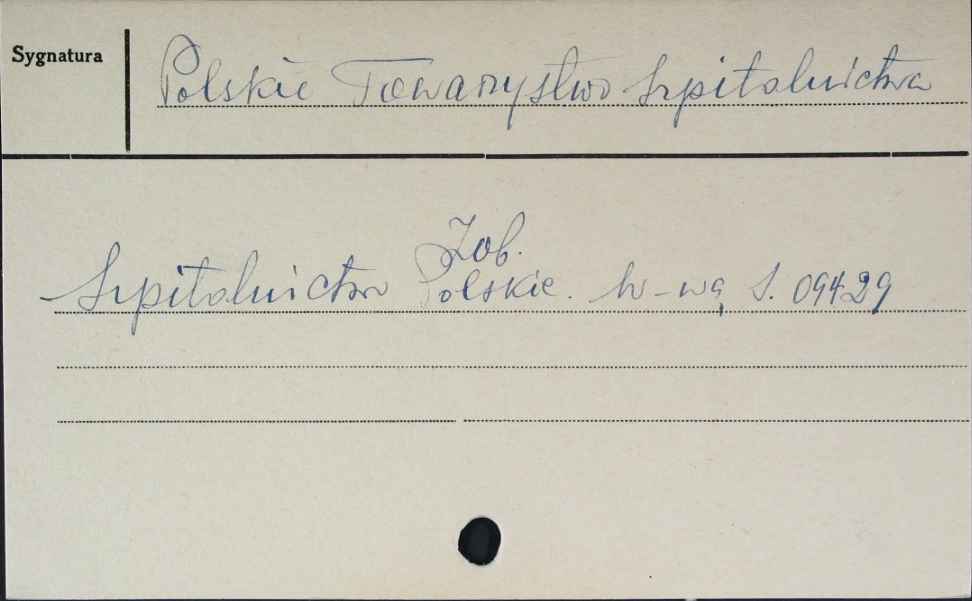 Sygnatura
Polskie Towarzystwo Szpitalnictwa
Zob.
Szpitalnictwo Polskie. W-wa, S. 09429